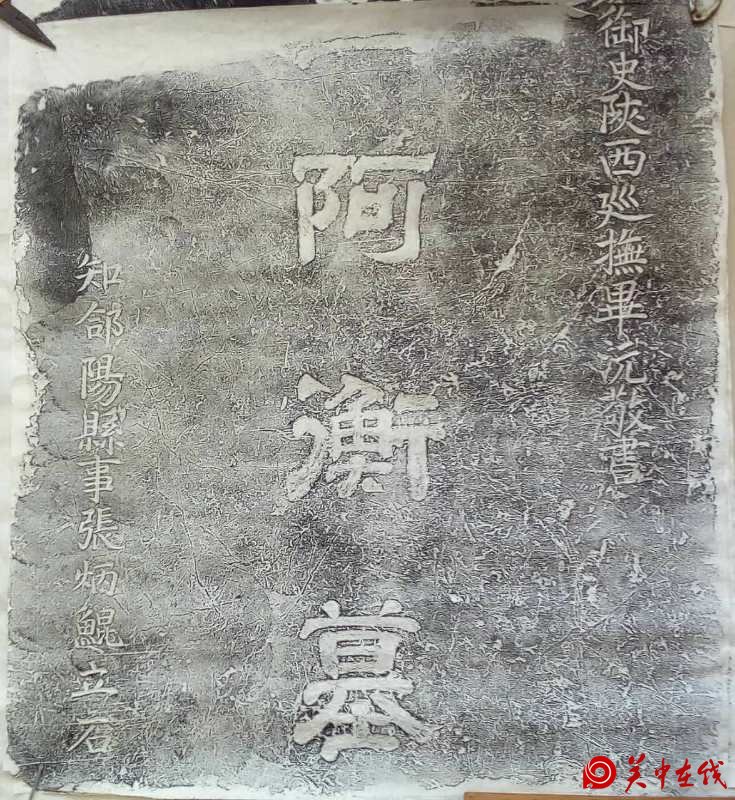 御史陝西廵撫畢沅敬書
阿衡墓
知郃陽縣事張炳鯤立石
关中在线